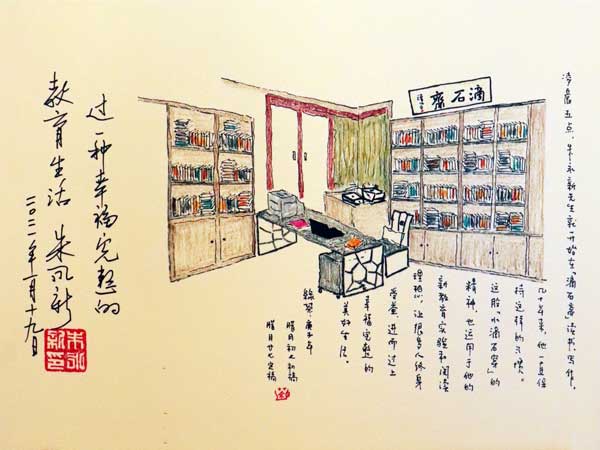 滴石齋
凌晨五点，朱永新先生就开始在「滴石斋」读书、写作。
几十年来，他一直保
持这样的习惯。
这股「水滴石穿」的
精神，也运用于他的
新教育实验和阅读
理想，让很多人终身
受益，进而过上
幸福完整的
美好生活。
庚子年
腊月初七初稿
腊月廿七定稿
过一种幸福完整的
教育生活 朱永新
二〇二一年一月十九日
朱永新印